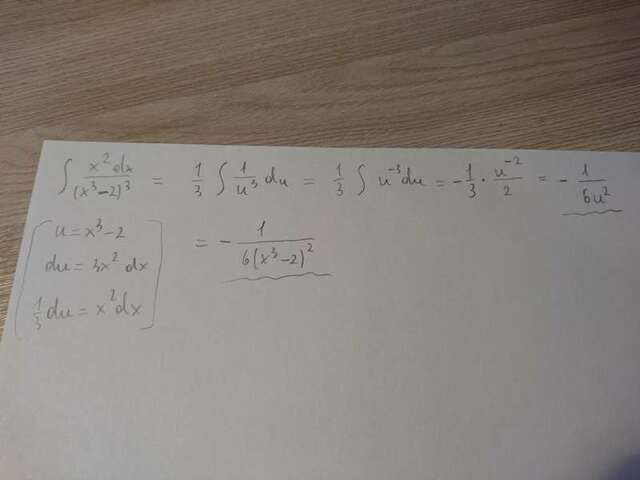 ∫ x² dx / (x³-2)³ = 1/3 ∫ 1/u³ du = 1/3 ∫ u⁻³ du = -1/3 · u⁻²/2 = - 1/6u²
u = x³-2
du = 3x² dx
1/3 du = x² dx
= - 1/6(x³-2)²